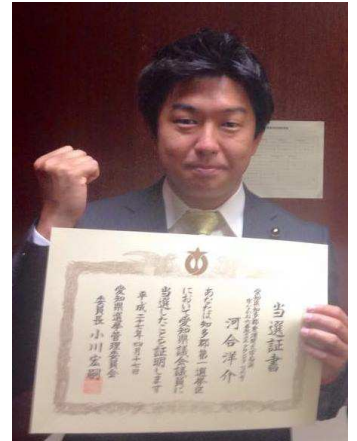 当選証書
河合洋介
あなたは知多郡第一選挙区
において愛知県議会議員に
当選したことを証明します
平成二十七年四月十七日
愛知県選挙管理委員会
委員長 小川宏嗣